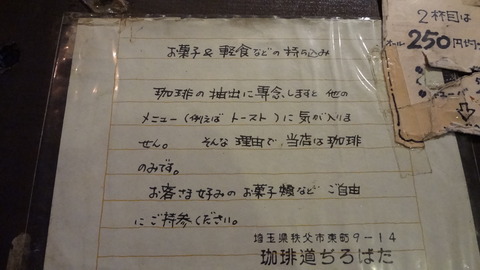 お菓子&軽食などの持ち込み
珈琲の抽出に専念しますと他の
メニュー(例えばトースト)に気が入りま
せん。 そんな理由で、当店は珈琲
のみです。
お客さま好みのお菓子類など ご自由
にご持参ください。
埼玉県秩父市東町9-14
珈琲道ぢろばた
2杯目は
オール250円均一